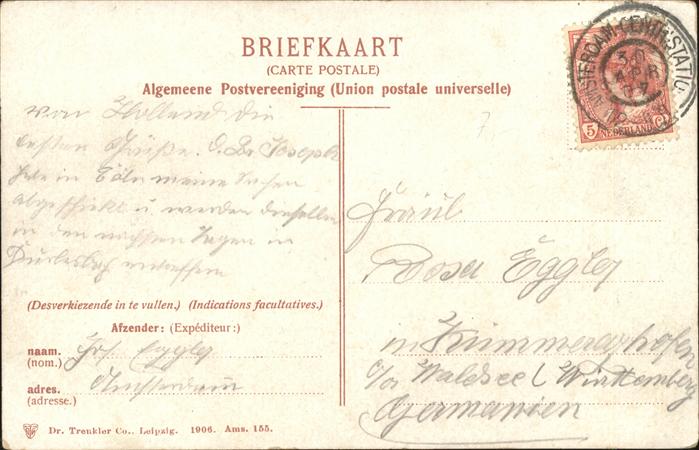 BRIEFKAART
(CARTE POSTALE)
Algemeene Postvereeniging (Union postale universelle)
AMSTERDAM-CENTR:STATION
30
APR
07
5 NEDERLAND Ct
von Holland die
besten Grüße. Joseph
habe in Cöln meine Sachen
abgeschickt u werden dieselben
in den nächsten Tagen in
eintreffen
Fräul
Rosa Eggler
in
o/a Waldsee (Württemberg
Germanien
(Desverkiezende in te vullen.) (Indications facultatives.)
Afzender: (Expéditeur:)
naam. Jos. Eggler
(nom.)
adres. Amsterdam
(adresse.)
Dr. Trenkler Co., Leipzig. 1906. Ams. 155.